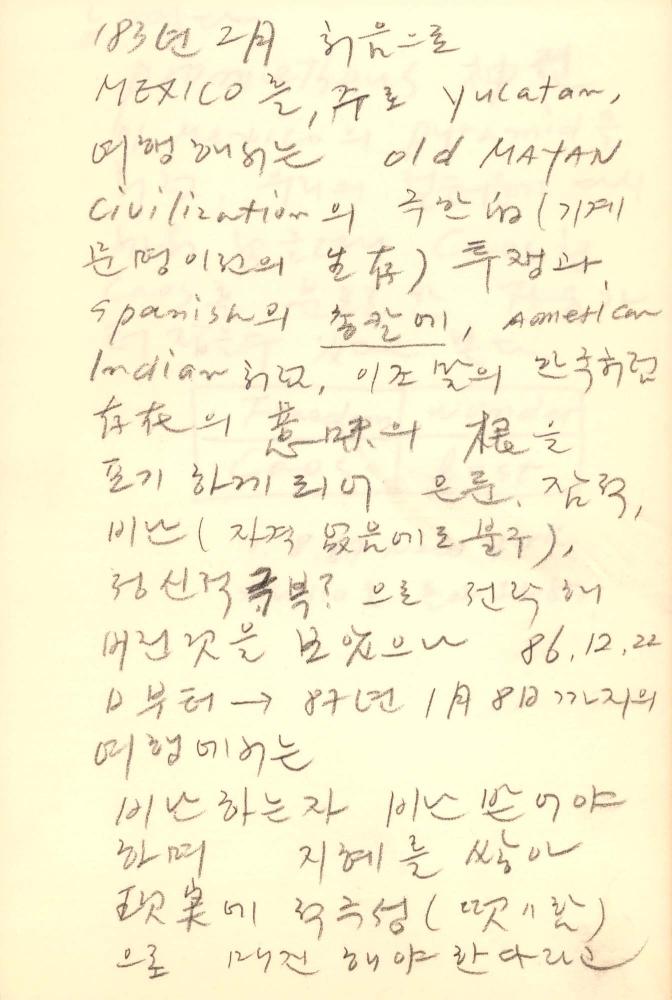 '83년 2月 처음으로
MEXICO를, 주로 yucatan,
여행해서는 old MAYAN
civilization의 극한的(기계
문명이전의 生存) 투쟁과
spanish의 총칼에, American
Indian처럼, 이조 말의 한국처럼
存在의 意味의 根을
포기하게 되어 은둔, 잠적,
비난(자격 없음에도 불구),
정신적 극복? 으로 전락해
버린것을 보았으나 86.12.22
日부터 → 87년 1月 8日까지의
여행에서는
비난하는자 비난 받어야
하며 지혜를 쌓아
現実에 적극성(떳떳함)
으로 매진해야 한다라고